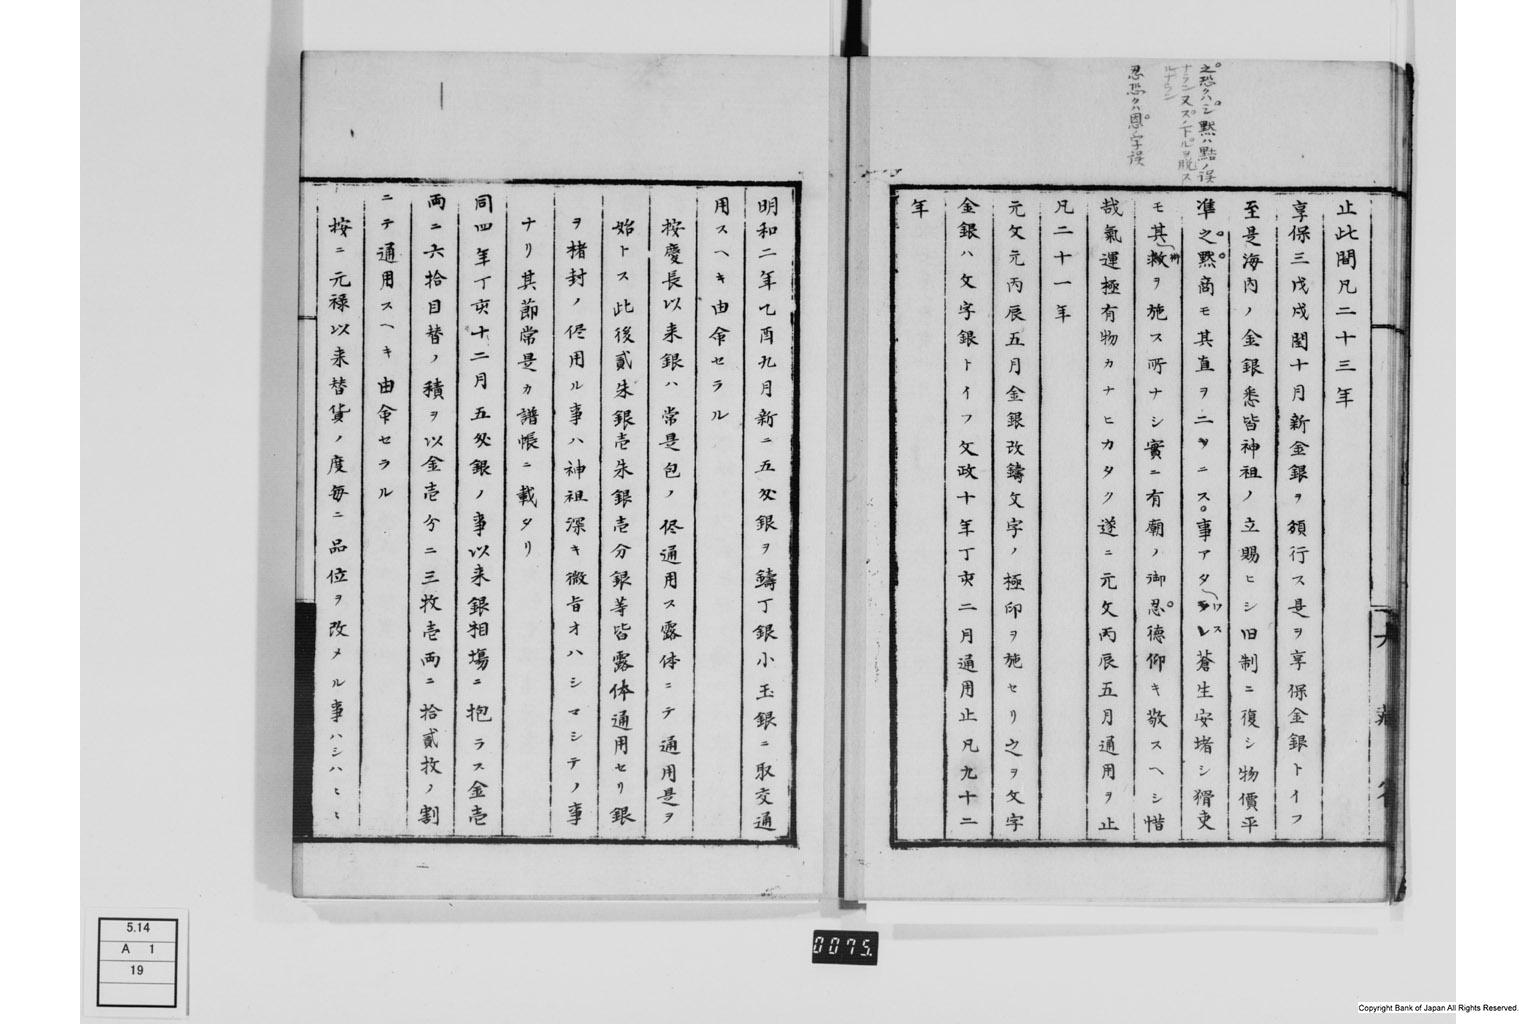 之恐クハシ黙ハ點ノ誤
ナラン又スノ下ルヲ脱ス
ルナラン
忍恐クハ恩ノ字誤
止此間凡二十三年
享保三戊戌閏十月新金銀ヲ頒行ス是ヲ享保金銀トイフ
至是海内ノ金銀悉皆神祖ノ立賜ヒシ旧制ニ復シ物價平
準之黙商モ其直ヲ二ツニス事アタワス蒼生安堵シ猾吏
モ其術救ヲ施ス所ナシ實ニ有廟ノ御忍德仰キ敬スヘシ惜
哉氣運極有物カナヒカタク遂ニ元文丙辰五月通用ヲ止
凡二十一年
元文元丙辰五月金銀改鑄文字ノ極印ヲ施セリ之ヲ文字
金銀ハ文字銀トイフ文政十年丁亥二月通用止凡九十二
年
明和二年乙酉九月新ニ五匁銀ヲ鑄丁銀小玉銀ニ取交通
用スヘキ由命セラル
按慶長以来銀ハ常是包ノ侭通用ス露体ニテ通用是ヲ
始トス此後貳朱銀壱朱銀壱分銀等皆露体通用セリ銀
ヲ楮封ノ侭用ル事ハ神祖深キ微旨オハシマシテノ事
ナリ其節常是カ譜帳ニ載タリ
同四年丁亥十二月五匁銀ノ事以来銀相場ニ抱ラス金壱
両ニ六拾目替ノ積ヲ以金壱分ニ三枚壱両ニ拾貳枚ノ割
ニテ通用スヘキ由命セラル
按ニ元禄以来替貨ノ度毎ニ品位ヲ改メル事ハシハ〻〻
5.14
A 1
19
0075.
Copyright Bank of Japan All Rights Reserved.